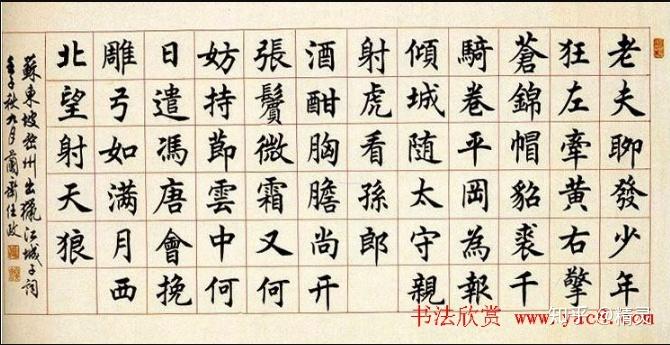 老夫聊發少年
狂左牽黃右擎
蒼錦帽貂裘千
騎卷平岡為報
傾城随太守親
射虎看孫郎
酒酣胸膽尚开
張鬢微霜又何
妨持節雲中何
日遣馮唐會挽
雕弓如满月西
北望射天狼
蘇東坡密州出獵江城子詞
壬子秋九月蘭齋任政
书法欣赏 www.yac8.com
知乎 @精灵